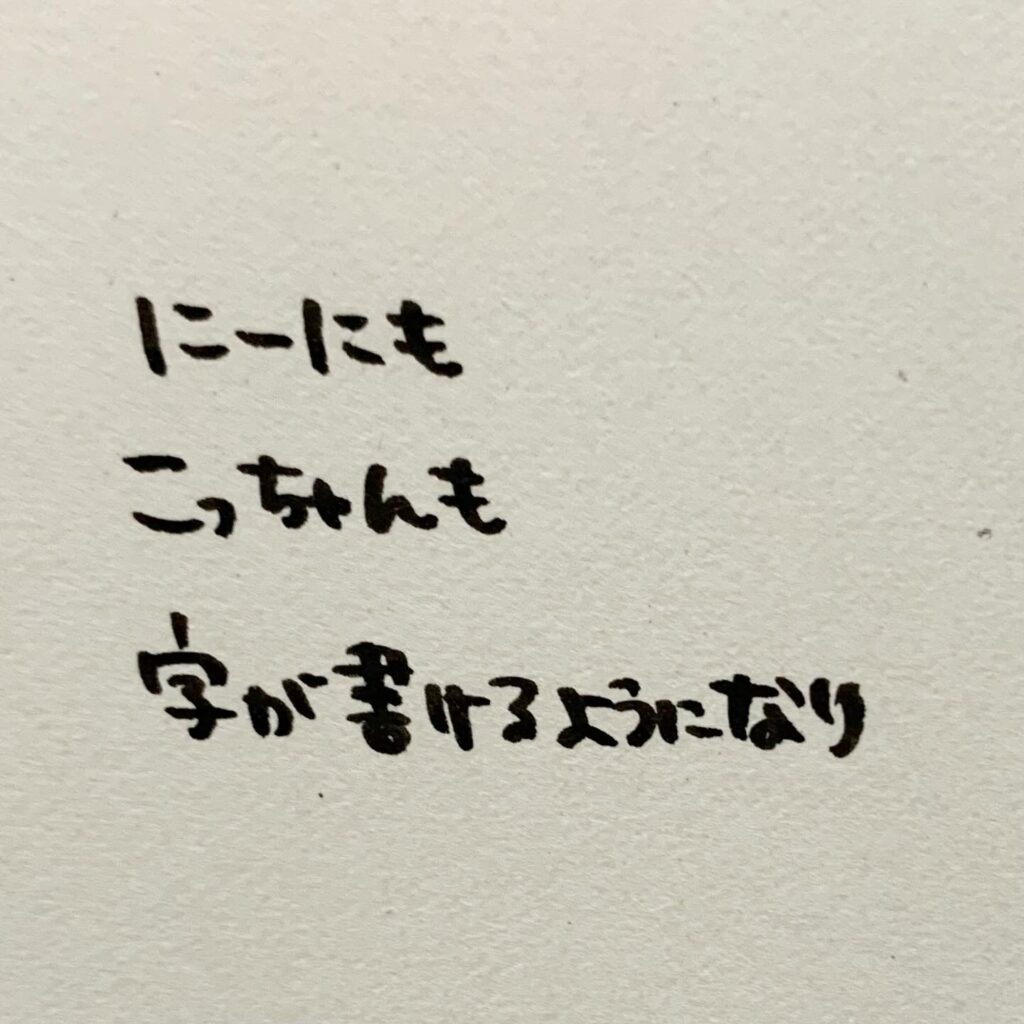 にーにも
こっちゃんも
字が書けるようになり